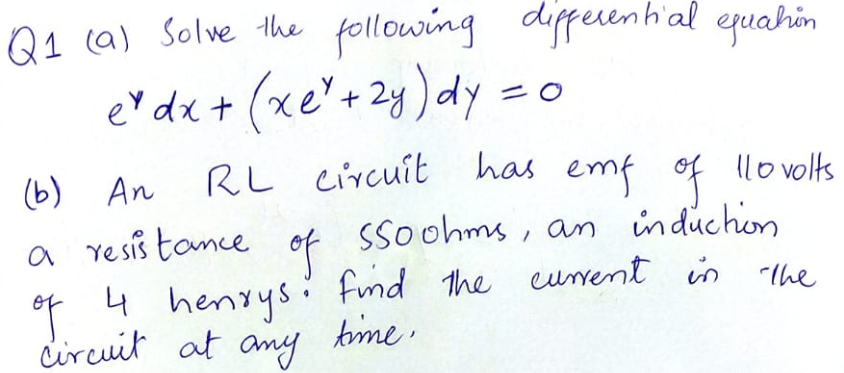 Q1 (a) Solve the following differential equation
e^y dx + (xe^y + 2y) dy = 0
(b) An RL circuit has emf of 110 volts
a resistance of 550 ohms, an induction
of 4 henrys. Find the current in the
circuit at any time.